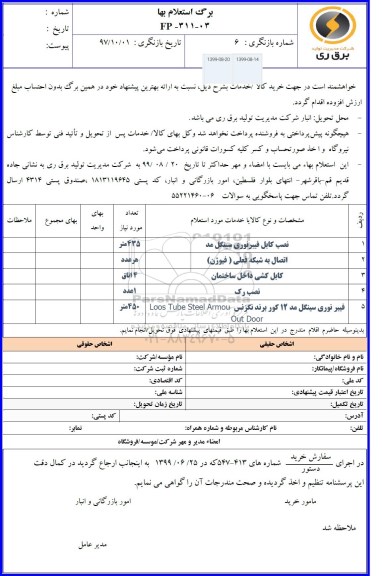 برگ استعلام بها
FP -۳۱۱-۰۳
شماره :
تاریخ :
پیوست:
شماره بازنگری : ۶
تاریخ بازنگری : ۹۷/۱۰/۰۱
شرکت مدیریت تولید
برق ری
1399-08-20
1399-08-14
خواهشمند است در جهت خرید کالا /خدمات بشرح ذیل، نسبت به ارائه بهترین پیشنهاد خود در همین برگ بدون احتساب مبلغ
ارزش افزوده اقدام گردد.
- محل تحویل: انبار شرکت مدیریت تولید برق ری می باشد.
- هیچگونه پیش‌پرداختی به فروشنده پرداخت نخواهد شد وکل بهای کالا/خدمات پس از تحویل و تأئید فنی توسط کارشناس
نیروگاه و اخذ صورتحساب و کسر کلیه کسورات قانونی پرداخت می‌شود.
- این استعلام بهاء می بایست با امضاء و مهر حداکثر تا تاریخ ۲۰ /۹۹/۰۸ به شرکت مدیریت تولید برق ری به نشانی جاده
قدیم قم-باقرشهر- انتهای بلوار فلسطین، امور بازرگانی و انبار، کد پستی ۱۸۱۳۱۱۹۶۴۵ ،صندوق پستی ۴۳۱۴ ارسال
گردد.تلفن تماس جهت پاسخگویی به سوالات ۰۶-۵۵۲۲۱۴۶۰
ردیف مشخصات و نوع کالایا خدمات مورد استعلام تعداد مورد نیاز بهای واحد بهای مجموع ملاحظات
۱ نصب کابل فیبرنوری سینگل مد ۴۳۵متر
۲ اتصال به شبکه فعلی ( فیوژن) هرعدد
۳ کابل کشی داخل ساختمان ۴اتاق
۴ نصب رک ۱عدد
۵ فیبر نوری سینگل مد ۱۲ کور برند نگزنس Loos Tube Steel Armou ۴۵۰متر
Out Door
ParsNamadData
بدینوسیله حاضرم اقلام مندرج در این استعلام بهارا طبق قیمتهای پیشنهادی فوق تحویل/انجام نمایم.
اشخاص حقیقی اشخاص حقوقی
نام و نام خانوادگی: نام مؤسسه/شرکت:
نام فروشگاه/پیمانکار: شماره ثبت شرکت:
کد ملی: کد اقتصادی:
تاریخ اعتبار قیمت پیشنهادی: شناسه ملی:
تاریخ تکمیل: زمان تحویل:
آدرس: کد پستی:
تلفن: نام کارشناس مربوطه و شماره همراه: نمابر:
امضاء مدیر و مهر شرکت/موسسه/فروشگاه
در اجرای سفارش خرید/دستور شماره های ۴۱۳-۵۴۷که در ۲۵/ ۰۶/ ۱۳۹۹ به اینجانب ارجاع گردید در کمال دقت
این پرسشنامه تنظیم و اخذ گردیده و صحت مندرجات آن را گواهی می نمایم.
مامور خرید
امور بازرگانی و انبار
ملاحظه شد
مدیر عامل